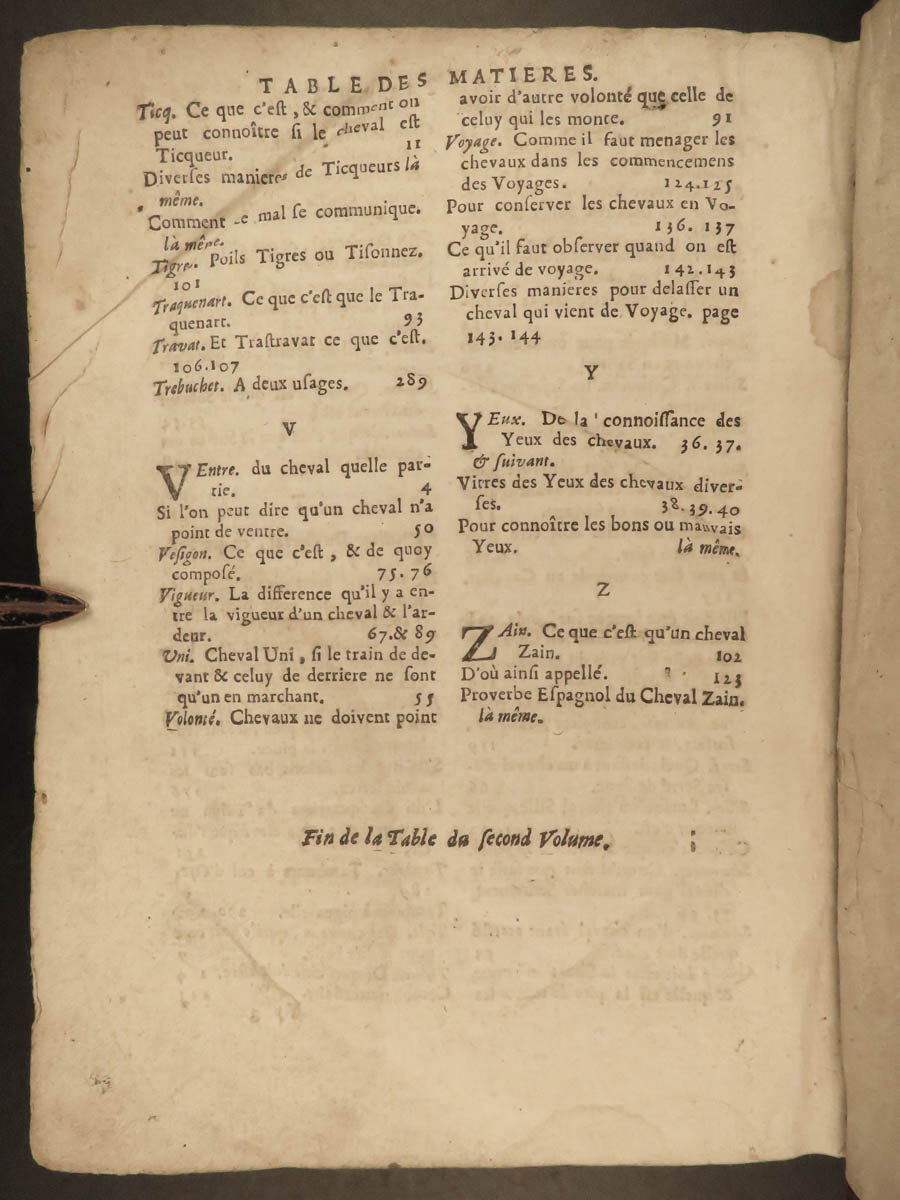 TABLE DES MATIERES.
Ticq. Ce que c'eſt, & comment on
peut connoître ſi le cheval eſt
Ticqueur. 11
Diverſes manieres de Ticqueurs là
même.
Comment ce mal ſe communique.
là même.
Tigre. Poils Tigres ou Tiſonnez.
101
Traquenart. Ce que c'eſt que le Tra-
quenart. 93
Travat. Et Traſtravat ce que c'eſt.
106.107
Trebuchet. A deux uſages. 289
V
VEntre. du cheval quelle par-
tie. 4
Si l'on peut dire qu'un cheval n'a
point de ventre. 50
Veſigon. Ce que c'eſt, & de quoy
compoſé. 75.76
Vigueur. La difference qu'il y a en-
tre la vigueur d'un cheval & l'ar-
deur. 67.& 89
Uni. Cheval Uni, ſi le train de de-
vant & celuy de derriere ne ſont
qu'un en marchant. 55
Volonté. Chevaux ne doivent point
avoir d'autre volonté que celle de
celuy qui les monte. 91
Voyage. Comme il faut menager les
chevaux dans les commencemens
des Voyages. 124.125
Pour conſerver les chevaux en Vo-
yage. 136. 137
Ce qu'il faut obſerver quand on eſt
arrivé de voyage. 142.143
Diverſes manieres pour delaſſer un
cheval qui vient de Voyage. page
143. 144
Y
YEux. De la connoiſſance des
Yeux des chevaux. 36. 37.
& ſuivant.
Vitres des Yeux des chevaux diver-
ſes. 38.39.40
Pour connoître les bons ou mauvais
Yeux. là même.
Z
ZAin. Ce que c'eſt qu'un cheval
Zain. 102
D'où ainſi appellé. 123
Proverbe Eſpagnol du Cheval Zain.
là même.
Fin de la Table du ſecond Volume.